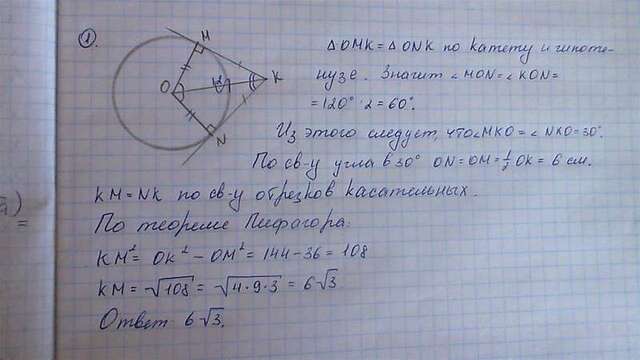 1.
M
O
12
K
N
△OMK=△ONK по катету и гипоте-
нузе. Значит ∠MON=∠KON=
=120°:2=60°.
Из этого следует, что ∠MKO=∠NKO=30°.
По св-у угла в 30° ON=OM=½OK=6 см.
KM=NK по св-у отрезков касательных.
По теореме Пифагора:
KM²=OK²-OM²=144-36=108
KM=√108=√4·9·3=6√3
Ответ 6√3.